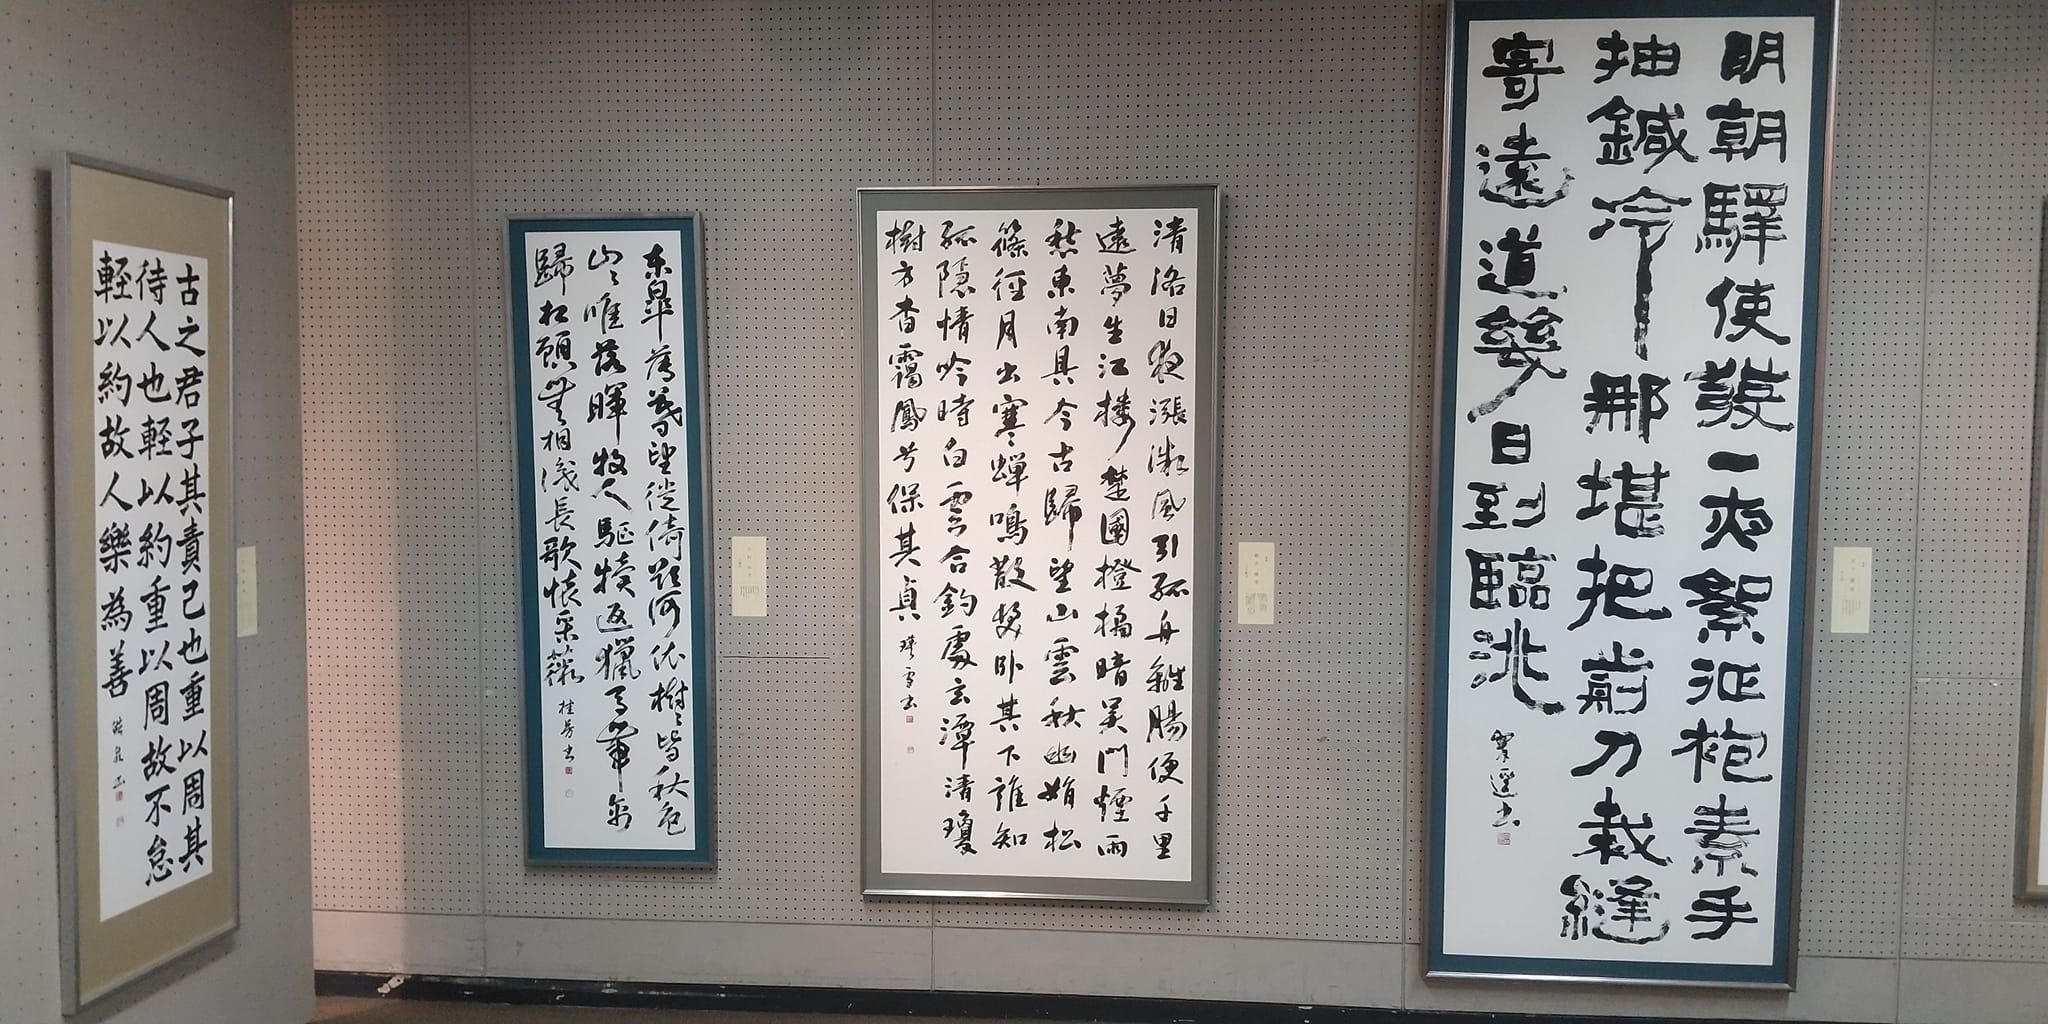 明朝驛使發一夜絮征袍素手
抽鍼冷那堪把剪刀裁縫
寄遠道幾日到臨洮
清洛日夜漲微風引孤舟離腸便千里
遠夢生江樓楚國橙橘暗吳門煙雨
愁東南具今古歸望山雲秋幽娟松
篠徑月出寒蟬鳴散髮卧其下誰知
孤隱情吟時白雲合釣處玄潭清瓊
樹方杳靄鳳兮保其貞
東皋薄暮望徙倚欲何依樹々皆秋色
山々唯落暉牧人驅犢返獵馬帶禽
歸相顧無相識長歌懷采薇 桂芳書
古之君子其責己也重以周其
待人也輕以約重以周故不怠
輕以約故人樂為善